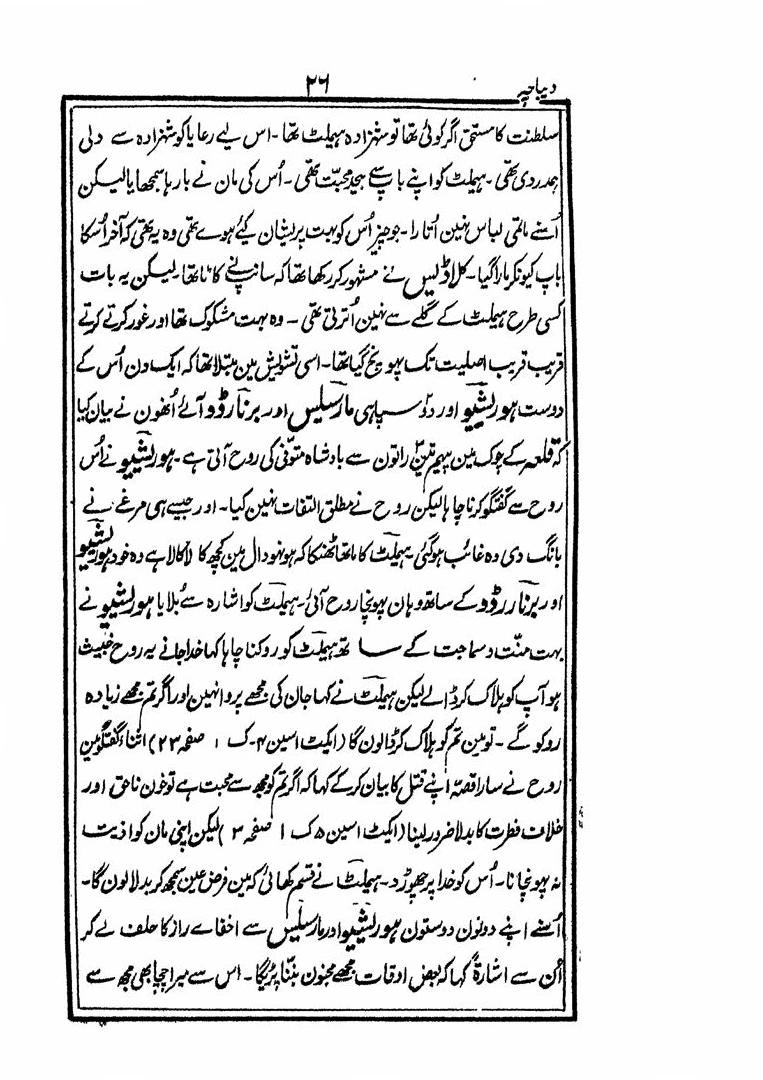 دیباچہ
۲۶
سلطنت کا مستحق اگر کوئی تھا تو شہزادہ ہیملٹ تھا۔ اس لیے رعایا کو شہزادہ سے دلی
ہمدردی تھی۔ ہیملٹ کو اپنے باپ سے بیحد محبت تھی۔ اُس کی مان نے بارہا سمجھایا لیکن
اُسنے ماتمی لباس نہین اُتارا۔ جو چیز اُس کو بہت پریشان کیے ہوے تھی وہ یہ تھی کہ آخر اُسکا
باپ کیونکر مارا گیا۔ کلاڈیس نے مشہور کر رکھا تھا کہ سانپ نے کاٹا تھا۔ لیکن یہ بات
کسی طرح ہیملٹ کے گلے سے نہین اُترتی تھی۔ وہ بہت مشکوک تھا اور غور کرتے کرتے
قریب قریب اصلیت تک پہونچ گیا تھا۔ اسی تشویش مین مبتلا تھا کہ ایک دن اُس کے
دوست ہوریشیو اور دو سپاہی مارسلیس اور برنارڈو آئے اُنھون نے بیان کیا
کہ قلعہ کے چوک مین پیہم تین راتون سے بادشاہ متوفی کی روح آتی ہے۔ ہوریشیو نے اُس
روح سے گفتگو کرنا چاہا لیکن روح نے مطلق التفات نہین کیا۔ اور جیسے ہی مرغے نے
بانگ دی وہ غائب ہوگئی۔ ہیملٹ کا ماتھا ٹھنکا کہ ہو نہو دال مین کچھ کالا کالا ہے وہ خود ہوریشیو
اور برنارڈو کے ساتھ وہان پہونچا روح آئی۔ ہیملٹ کو اشارہ سے بُلایا ہوریشیو نے
بہت منّت و سماجت کے ساتھ ہیملٹ کو روکنا چاہا کہا خدا جانے یہ روح خبیث
ہو آپ کو ہلاک کر ڈالے لیکن ہیملٹ نے کہا جان کی مجھے پروا نہین اور اگر تم مجھے زیادہ
روکو گے۔ تو مین تم کو ہلاک کر ڈالون گا (ایکٹ اسین ۴۔ ک ۱ صفحہ ۲۳) اثناء گفتگو مین
روح نے سارا قصّہ اپنے قتل کا بیان کر کے کہا کہ اگر تم کو مجھ سے محبت ہے تو خون ناحق اور
خلاف فطرت کا بدلا ضرور لینا (ایکٹ اسین ۵ ک ۱ صفحہ ۳ ) لیکن اپنی مان کو اذیت
نہ پہونچانا۔ اُس کو خدا پر چھوڑ د۔ ہیملٹ نے قسم کھائی کہ مین فرض عین سمجھ کر بدلا لون گا۔
اُسنے اپنے دونون دوستون ہوریشیو اور مارسلیس سے اخفاے راز کا حلف لے کر
اُن سے اشارۃً کہا کہ بعض اوقات مجھے مجنون بننا پڑیگا۔ اس سے میرا چچا بھی مجھ سے